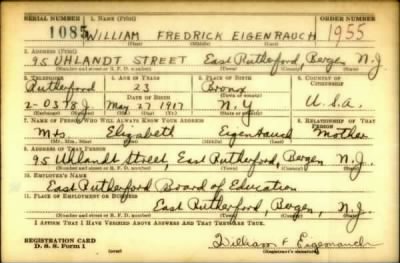 SERIAL NUMBER 1. NAME (Print) ORDER NUMBER
1085 WILLIAM FREDRICK EIGENRAUCH 1955
(First) (Middle) (Last)
2. ADDRESS (Print)
95 UHLANDT STREET East Rutherford, Bergen N.J.
(Number and street or R. F. D. number) (Town) (County) (State)
3. TELEPHONE 4. AGE IN YEARS 5. PLACE OF BIRTH 6. COUNTRY OF CITIZENSHIP
Rutherford 23 Bronx
DATE OF BIRTH (Town or county)
2-0378J May 27 1917 N.Y. U.S.A.
(Mo.) (Day) (Yr.) (State or country)
7. NAME OF PERSON WHO WILL ALWAYS KNOW YOUR ADDRESS 8. RELATIONSHIP OF THAT PERSON
Mrs Elizabeth Eigenrauch Mother
(Mr., Mrs., Miss) (First) (Middle) (Last)
9. ADDRESS OF THAT PERSON
95 Uhlandt Street, East Rutherford, Bergen N.J.
(Number and street or R. F. D. number) (Town) (County) (State)
10. EMPLOYER'S NAME
East Rutherford Board of Education
11. PLACE OF EMPLOYMENT OR BUSINESS
East Rutherford, Bergen, N.J.
(Number and street or R. F. D. number) (Town) (County) (State)
I AFFIRM THAT I HAVE VERIFIED ABOVE ANSWERS AND THAT THEY ARE TRUE.
REGISTRATION CARD
D. S. S. Form 1 William F Eigenrauch
(Registrant's signature)